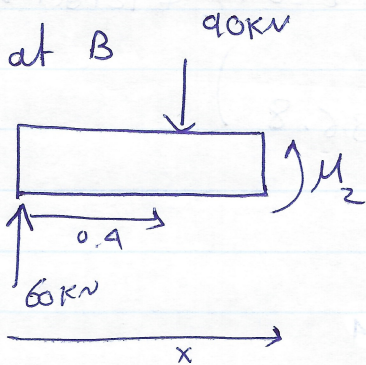 at B
90KN
M2
0.4
60KN
x